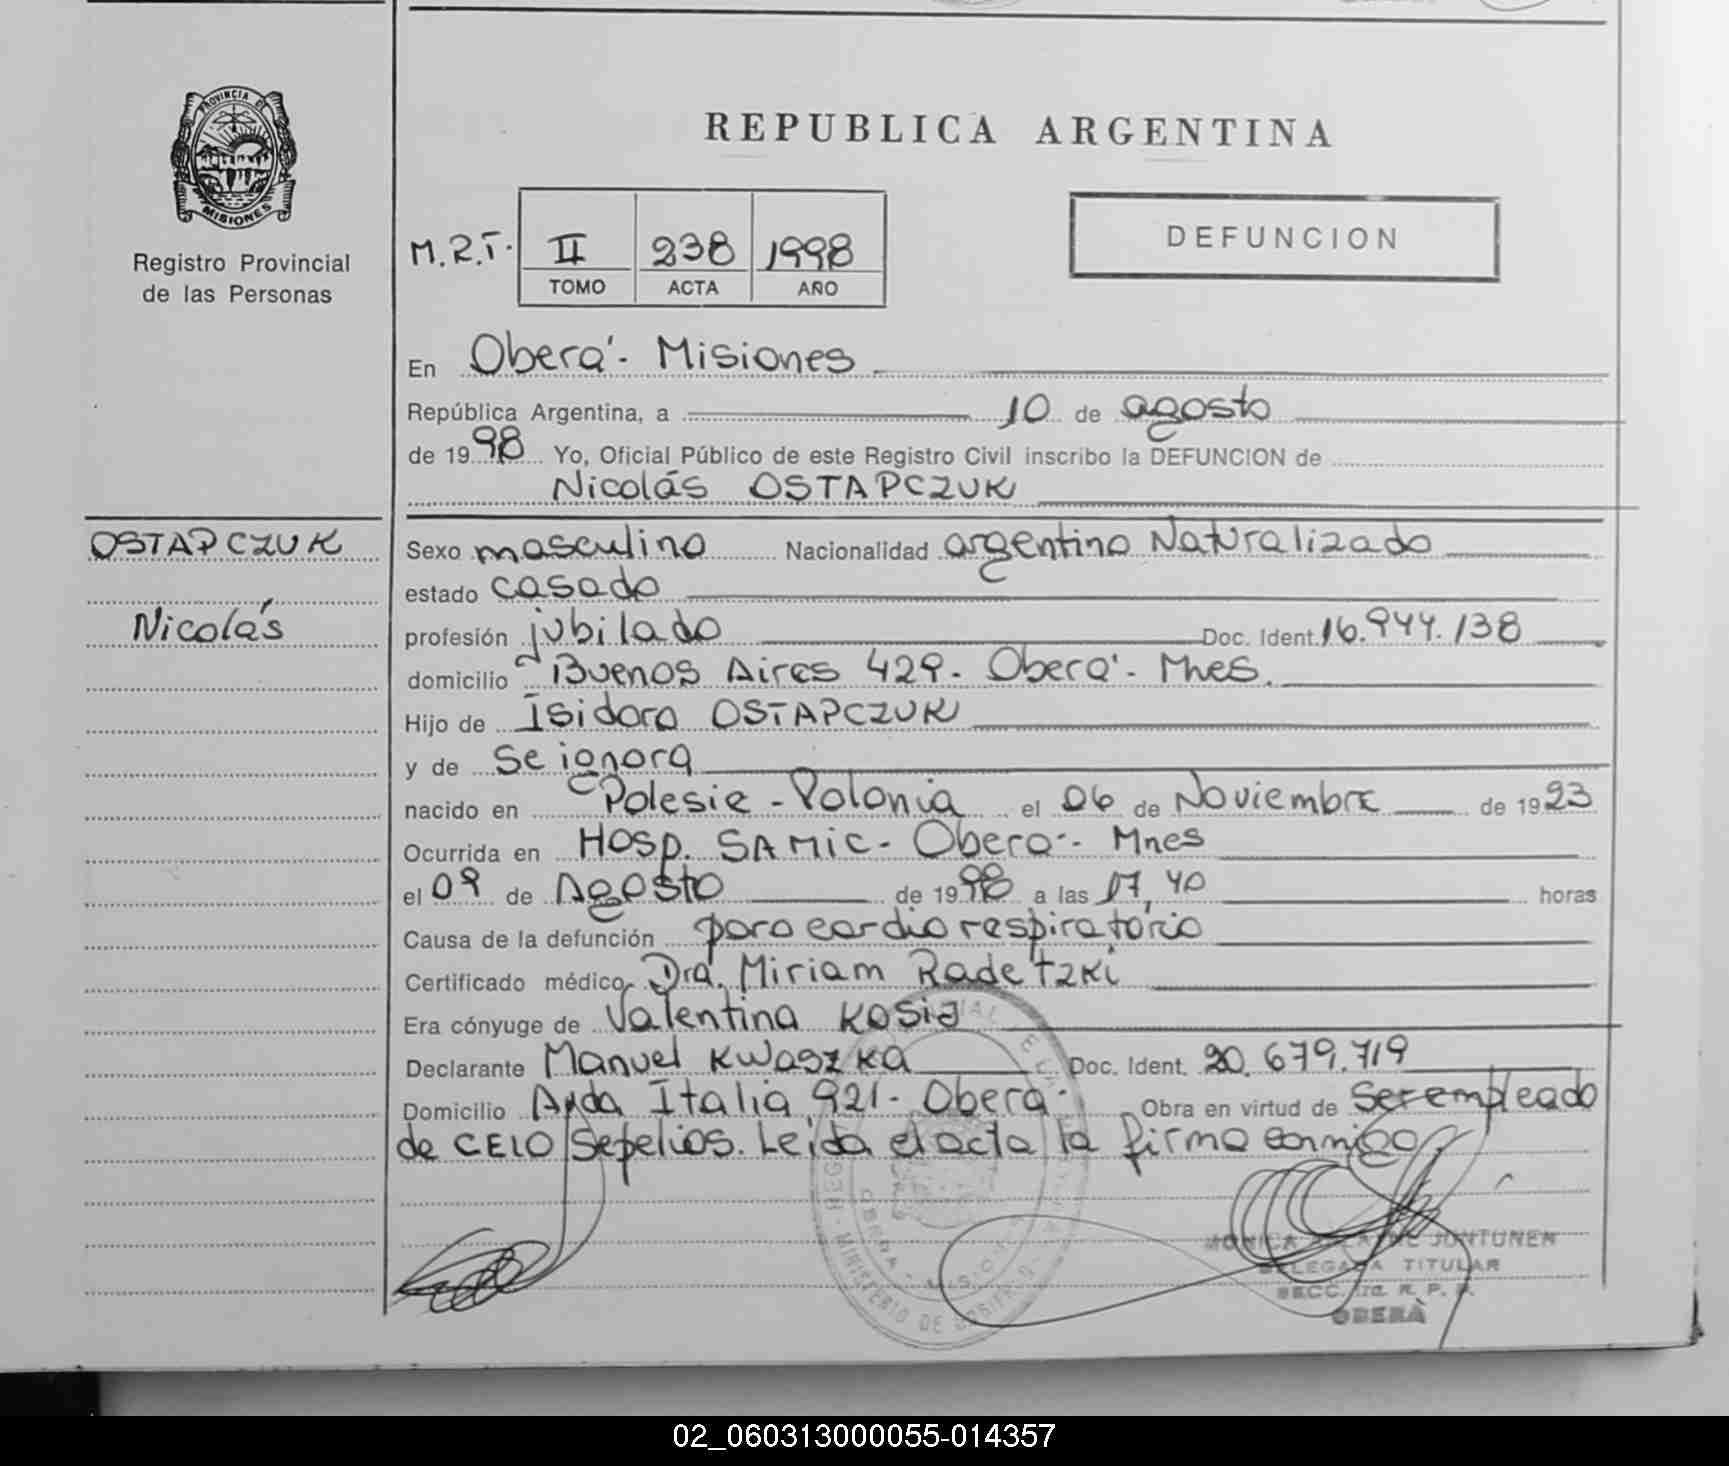 PROVINCIA DE
MISIONES
Registro Provincial
de las Personas
REPUBLICA ARGENTINA
M.R.T. II 238 1998
TOMO ACTA AÑO
DEFUNCION
En Oberá - Misiones
República Argentina, a 10 de agosto
de 1998 Yo, Oficial Público de este Registro Civil inscribo la DEFUNCION de
Nicolás OSTAPCZUK
OSTAPCZUK
Nicolás
Sexo masculino Nacionalidad argentino Naturalizado
estado casado
profesión jubilado Doc. Ident. 16.944.138
domicilio Buenos Aires 429 - Oberá - Mnes.
Hijo de Isidoro OSTAPCZUK
y de se ignora
nacido en Polesie - Polonia el 06 de Noviembre de 1923
Ocurrida en Hosp. SAMIC - Oberá - Mnes
el 09 de Agosto de 1998 a las 17,40 horas
Causa de la defunción paro cardio respiratorio
Certificado médico Dra. Miriam Radetzki
Era cónyuge de Valentina Kosie
Declarante Manuel KWASZKA Doc. Ident. 20.679.719
Domicilio Avda Italia 921 - Oberá - Obra en virtud de Ser empleado
de CELO Sepelios. Leída el acta la firma conmigo
MINISTERIO DE GOBIERNO
OBERA MISIONES
MONICA JUNTUNEN
DELEGADA TITULAR
SECC. 1ra. R. P. P.
OBERÀ
02_060313000055-014357